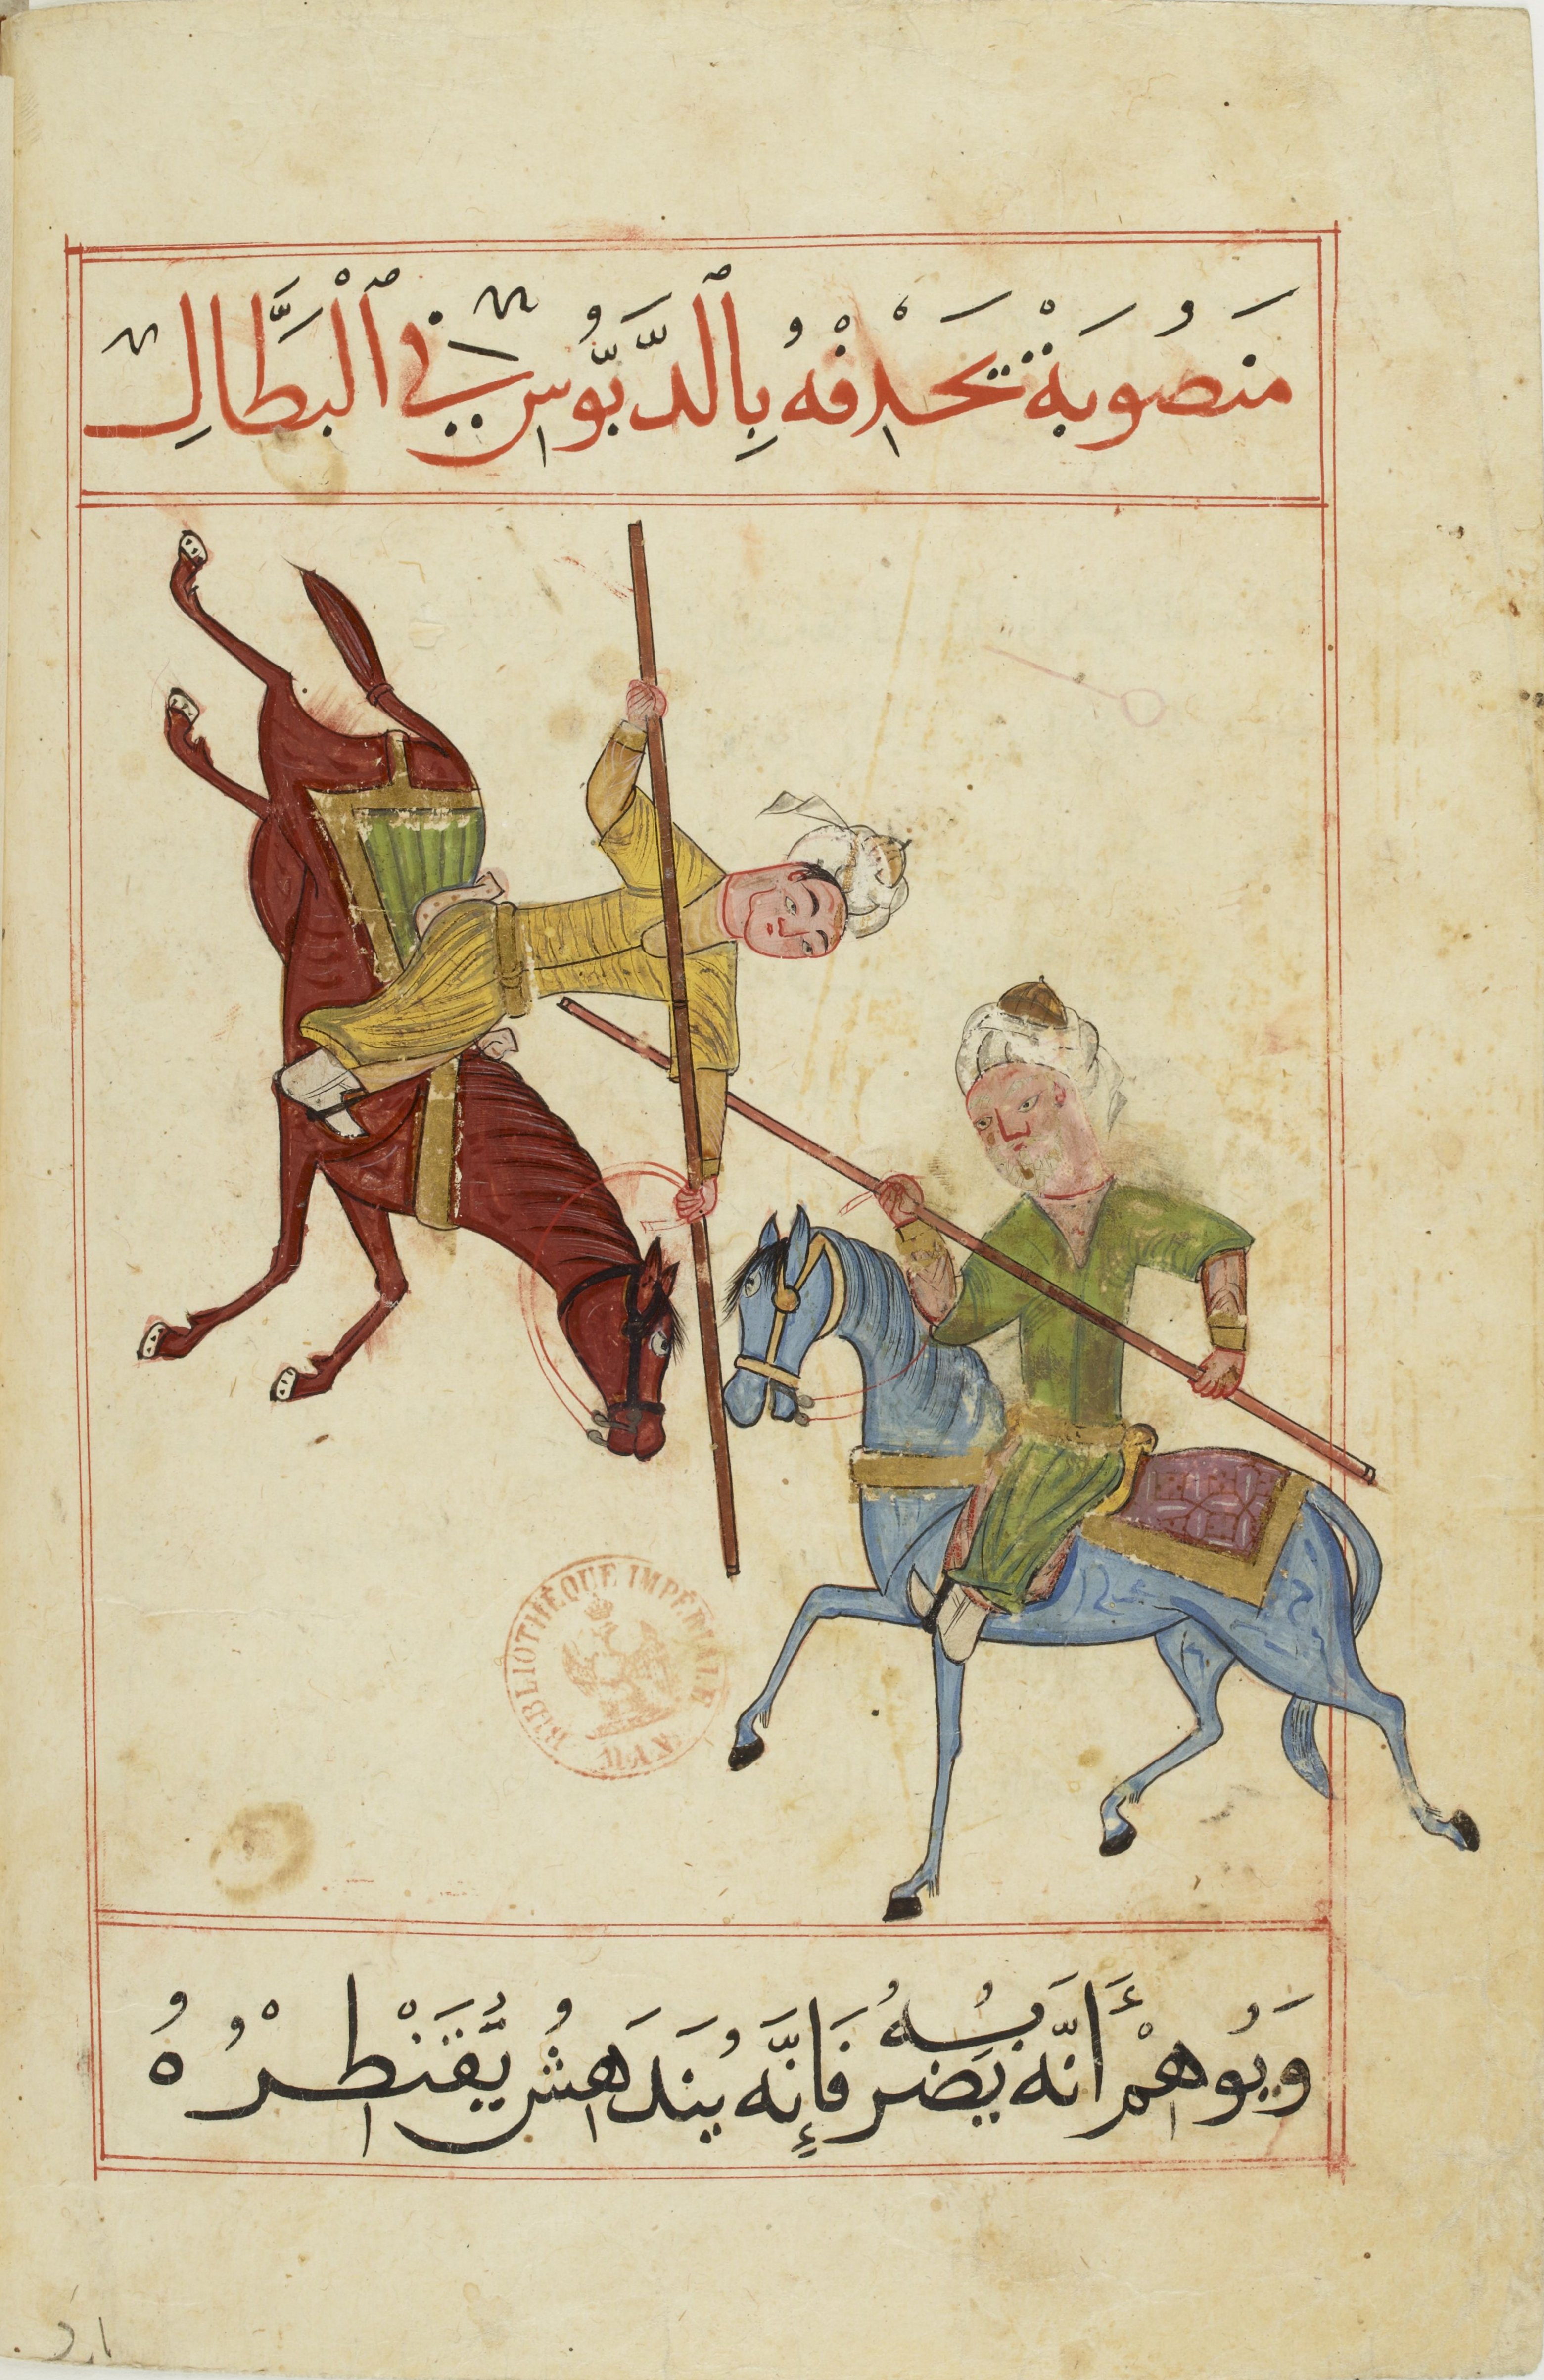 مَنصُوبَةْ تَحْدِفْهُ بِالدَّبُّوسِ فِي ٱلْبَطَّالِ
BIBLIOTHÈQUE IMPÉRIALE
MAN
وَيُوهِمْ أَنَّه يَضربُهُ فَإِنَّه يَندَهِشُ يُقَنْطِرُهُ